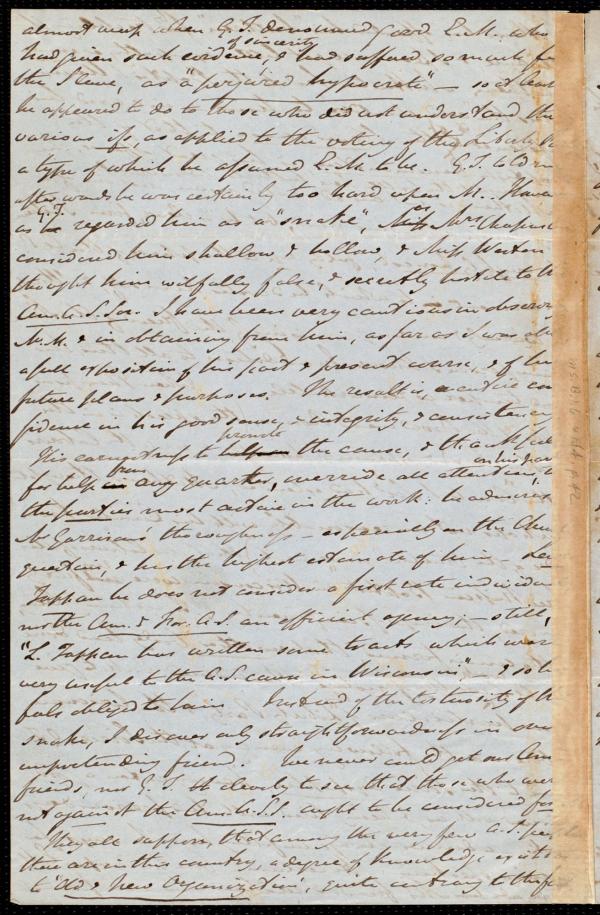 almost weep when G. T. denounced good E. M. who
had given such evidence of sincerity, & had suffered so much for
the Slave, as a "perjured hypocrite" — so at least
he appeared to do to those who did not understand the
various ifs, as applied to the voting of the Liberty
a type of which he assumed E. M. to be. G. T. told me
afterwards he was certainly too hard upon M.
as G. T. regarded him as a "snake", Miss or Mrs Chapman
considered him shallow & hollow, & Miss Weston
thought him wilfully false, & secretly hostile to the
Am. A. S. Soc. I have been very cautious in observing
& in obtaining from him, as far as I was
a full exposition of his past & present course, & of his
future plans & purposes. The result is, entire con
fidence in his good sense, & integrity, & consistency
His earnestness to promote the cause, & thankful
for help from any quarter, override all attention, on his part
the part is most active in the work: he admires
Mr Garrison's thoroughness — especially on the Church
question, & has the highest estimate of him — Lewis
Tappan he does not consider a first rate individual
nor the Am. & For. A. S. an efficient agency; — still,
"L. Tappan has written some tracts which were
very useful to the A. S. cause in Wisconsin", & so he
feels obliged to him. Instead of the tortuosity of the
snake, I discover only straightforwardness in our
unpretending friend. We never could get our Am.
friends, nor G. T. clearly to see that those who were
not against the Am. A. S. S. ought to be considered for
They all suppose, that among the very few A. S. people
there are in this country, a degree of knowledge exists
to "Old & New Organization", quite contrary to the